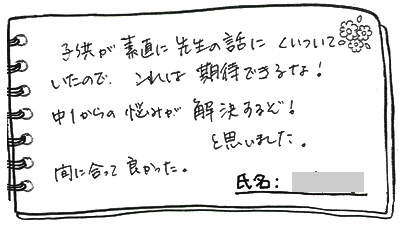 子供が素直に先生の話にくいついて
いたので、これは期待できるな！
中1からの悩みが解決するぞ！
と思いました。
間に合って良かった。
氏名：